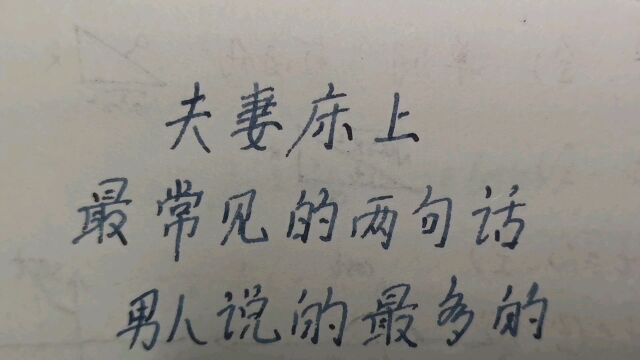 夫妻床上
最常见的两句话
男人说的最多的